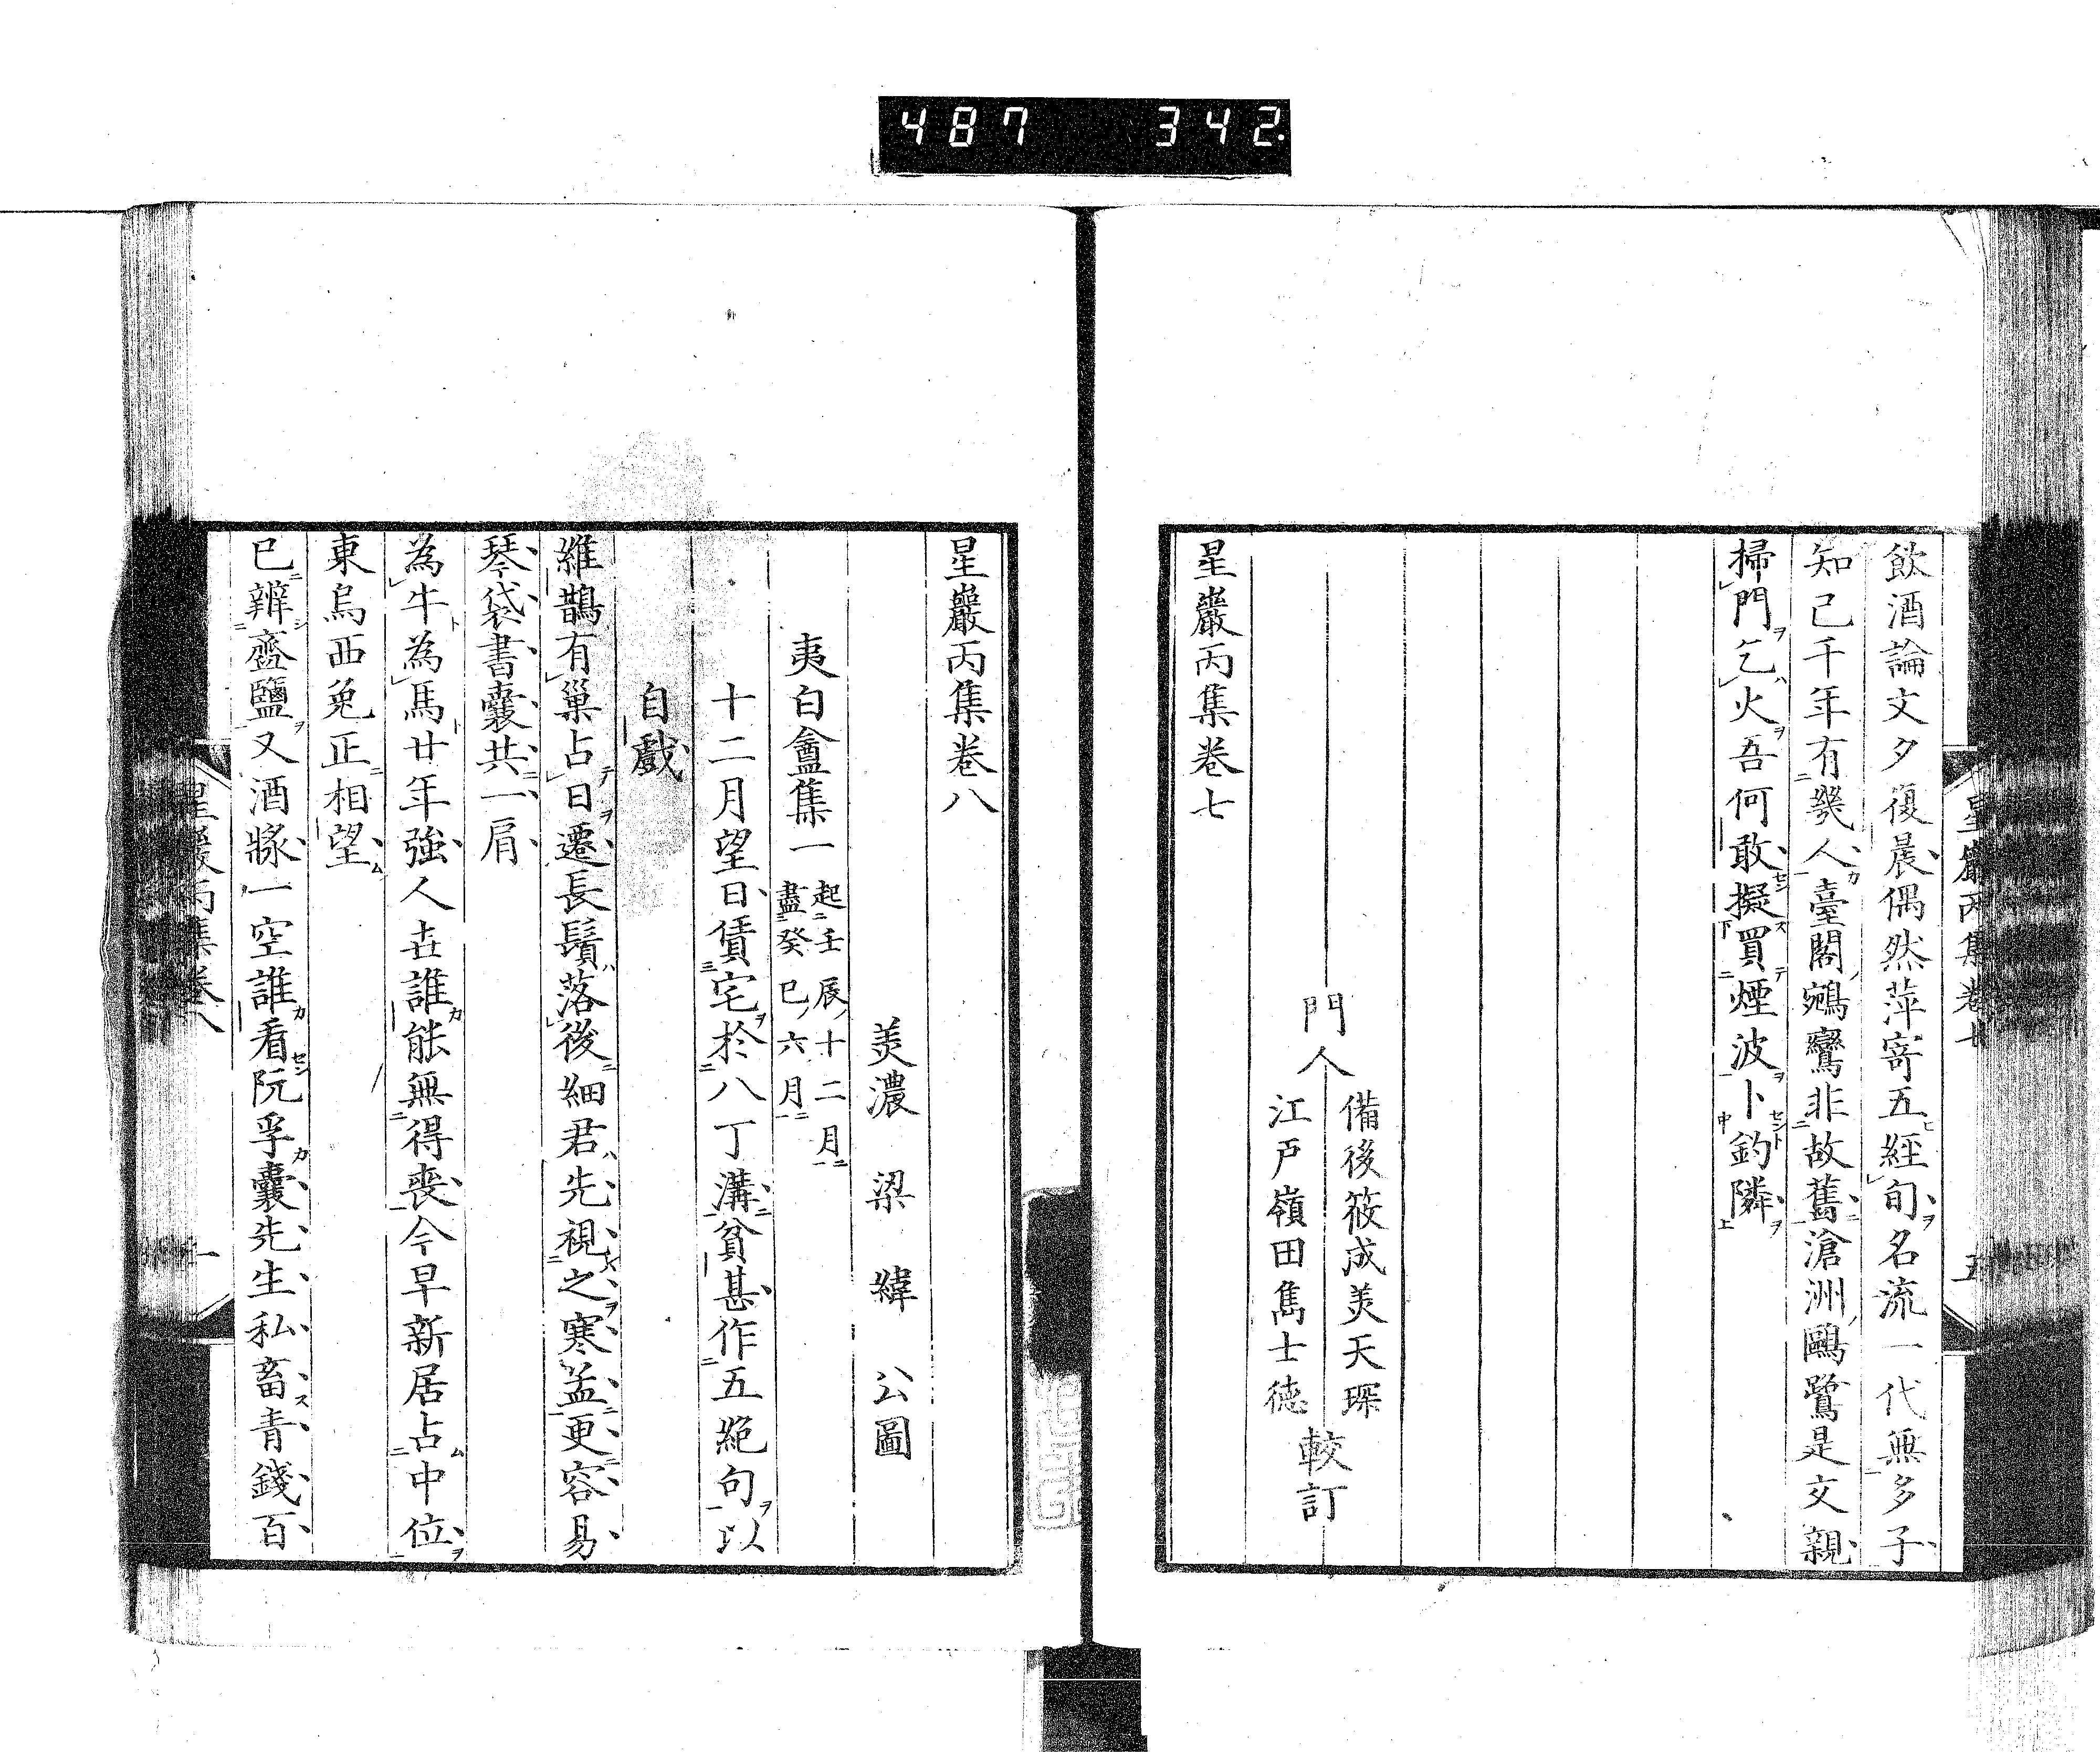 487 342
星巖丙集卷七
五
飲酒論文夕復晨偶然萍寄五經旬名流一代無多子
知己千年有幾人臺閣鵷鸞非故舊滄洲鷗鷺是交親
掃門乞火吾何敢擬買煙波卜釣隣
門人
備後筱成美天琛
江戸嶺田雋士德
較訂
星巖丙集卷七
星巖丙集卷八
美濃 梁 緯 公圖
夷白盦集一
起壬辰十二月
盡癸巳六月
十二月望日賃宅於八丁溝貧甚作五絕句以
自戲
維鵲有巢占日遷長鬚落後細君先視之寒孟更容易
琴袋書囊共一肩
為牛為馬廿年強人壵誰能無得喪今早新居占中位
東烏西兔正相望
已辦齏鹽又酒漿一空誰看阮孚囊先生私畜青錢百
星巖丙集卷八
一